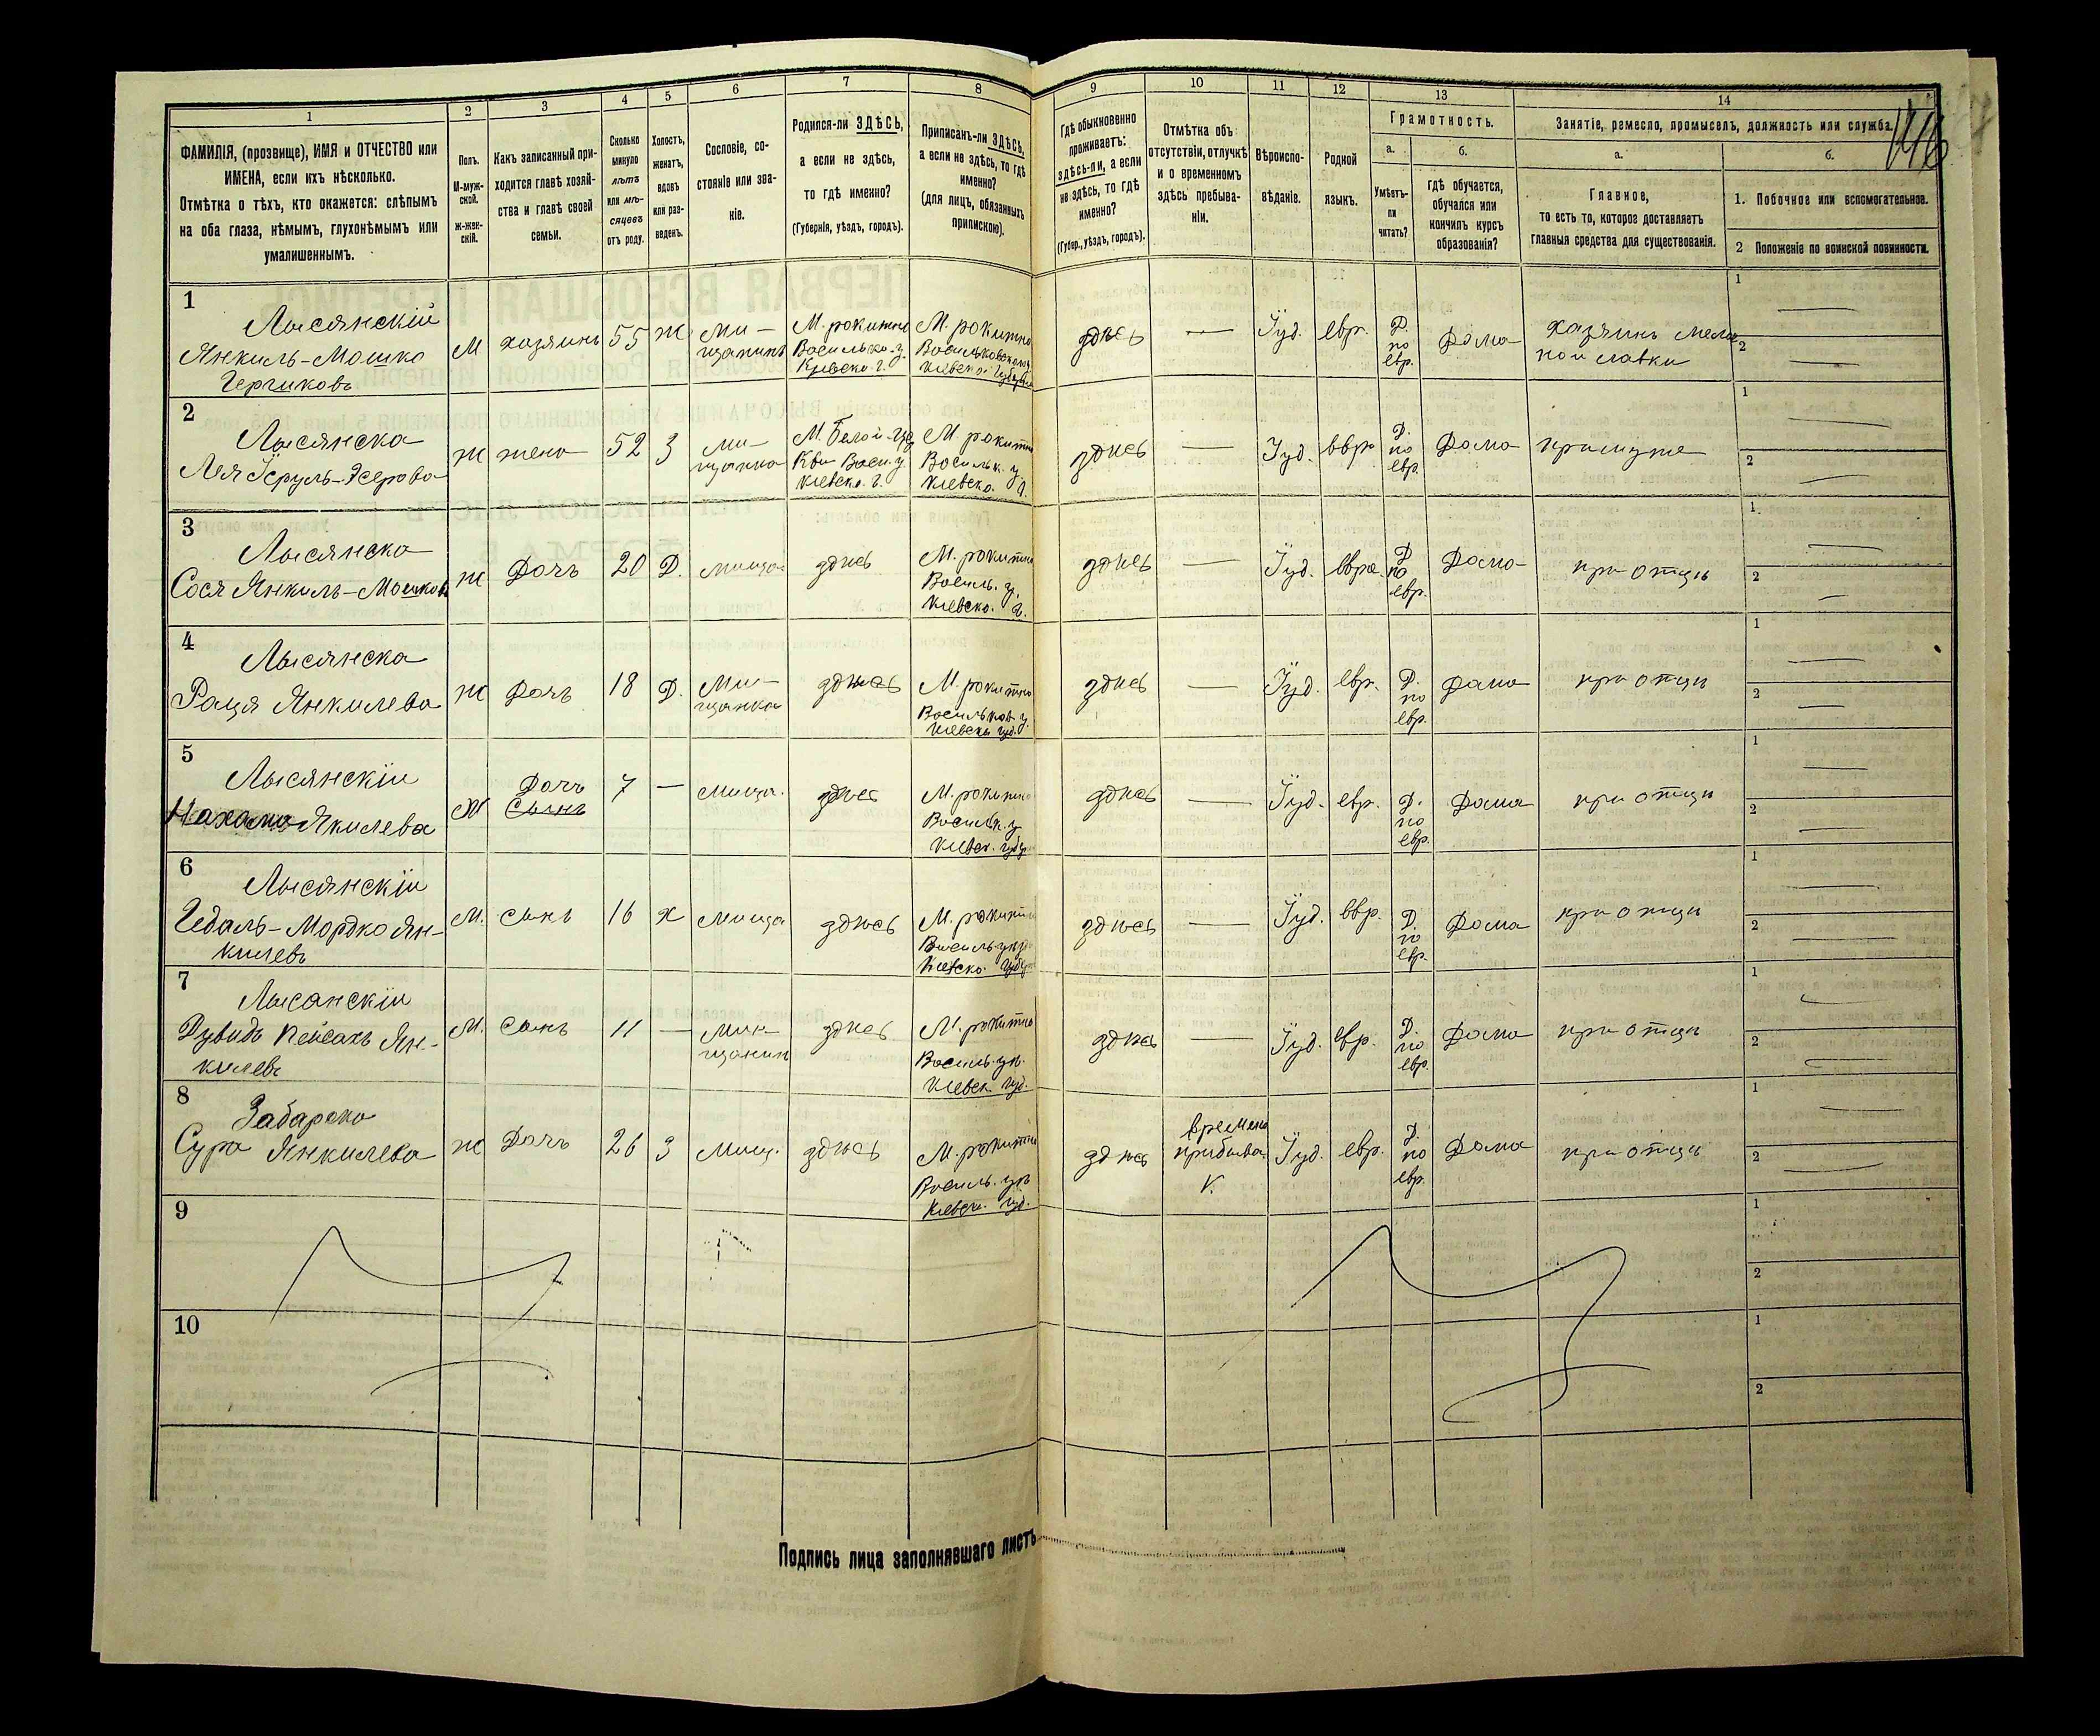 1 2 3 4 5 6 7 8 9 10 11 12 13 14
ФАМИЛІЯ, (прозвище), ИМЯ и ОТЧЕСТВО или
ИМЕНА, если ихъ нѣсколько.
Отмѣтка о тѣхъ, кто окажется: слѣпымъ
на оба глаза, нѣмымъ, глухонѣмымъ или
умалишеннымъ.
Полъ.
М-муж-
ской.
ж-жен-
скій.
Какъ записанный при-
ходится главѣ хозяй-
ства и главѣ своей
семьи.
Сколько
минуло
лѣтъ
или мѣ-
сяцевъ
отъ роду.
Холостъ,
женатъ,
вдовъ
или раз-
веденъ.
Сословіе, со-
стояніе или зва-
ніе.
Родился-ли ЗДѢСЬ,
а если не здѣсь,
то гдѣ именно?
(Губернія, уѣздъ, городъ).
Приписанъ-ли ЗДѢСЬ,
а если не здѣсь, то гдѣ
именно?
(для лицъ, обязанныхъ
припискою).
Гдѣ обыкновенно
проживаетъ:
здѣсь-ли, а если
не здѣсь, то гдѣ
именно?
(Губер., уѣздъ, городъ).
Отмѣтка объ
отсутствіи, отлучкѣ
и о временномъ
здѣсь пребыва-
ніи.
Вѣроиспо-
вѣданіе.
Родной
языкъ.
Грамотность.
а.
Умѣетъ-
ли
читать?
б.
гдѣ обучается,
обучался или
кончилъ курсъ
образованія?
Занятіе, ремесло, промыселъ, должность или служба.
а.
Главное,
то есть то, которое доставляетъ
главныя средства для существованія.
б.
1. Побочное или вспомогательное.
2 Положеніе по воинской повинности.
1
Лысянскій
Янкиль-Мошко
Гершковъ
М
хозяинъ
55
ж
ми-
щанинъ
М. рокитно
Василько. у.
Кіевско. г.
М. рокитно
Васильковского у.
Кіевско. Губерни
здѣсь
—
Іуд.
евр.
Д.
по
евр.
Дома
Хазяинъ мело
ной лавки
1
2
2
Лысянска
Лея Ісруль-
ж
жена
52
З
ми-
щанка
М. Белой-Це
Кви Васи. у.
Кіевско. г.
М. рокитно
Васильк. у
Кіевско. г.
здѣсь
—
Іуд.
евр
Д.
по
евр.
Дома
при муже
1
2
3
Лысянска
Сося Янкиль-Мошков
ж
Дочь
20
Д.
мища
здѣсь
М. рокитно
Василь. у.
Кіевско. г.
здѣсь
—
Іуд.
евре.
Д
по
евр.
Дома
при отцѣ
1
2
4
Лысянска
Рація Янкилева
ж
Дочь
18
Д.
Ми-
щанка
здѣсь
М. рокитно
Васильков у.
Кіевско губ.
здѣсь
—
Іуд.
евр.
Д.
по
евр.
Дома
при отцѣ
1
2
5
Лысянскіи
Нахама Якилева
Ж
Дочь
Сынъ
7
—
мища.
здѣсь
М. рокитно
Васильк. у
Кіевск. губер
здѣсь
—
Іуд.
евр.
Д.
по
евр.
Дома
при отцѣ
1
2
6
Лысянскіи
Гедаль-Мордко Ян-
килевъ
М.
сынъ
16
х
Мища
здѣсь
М. рокитно
Кіевско. Губер
здѣсь
—
Іуд.
евр.
Д.
по
евр.
Дома
при отцѣ
1
2
7
Лысанскіи
Дувидъ Пейсахъ Ян-
килевъ
М.
Сынъ
11
—
Ми-
щанин
здѣсь
М. рокитно
Василь. ув.
Кіевск губ.
здѣсь
—
Іуд.
евр.
Д.
по
евр.
Дома
при отцѣ
1
2
8
Забарска
Сура Янкилева
ж
Дочь
26
З
Мищ.
здѣсь
М. рокитно
Василь. ув
Кіевск. губ.
здѣсь
времено
прибыва.
V.
Іуд.
евр.
Д.
по
евр.
Дома
при отцѣ
1
2
9
1
2
10
1
2
Подпись лица заполнявшаго листъ